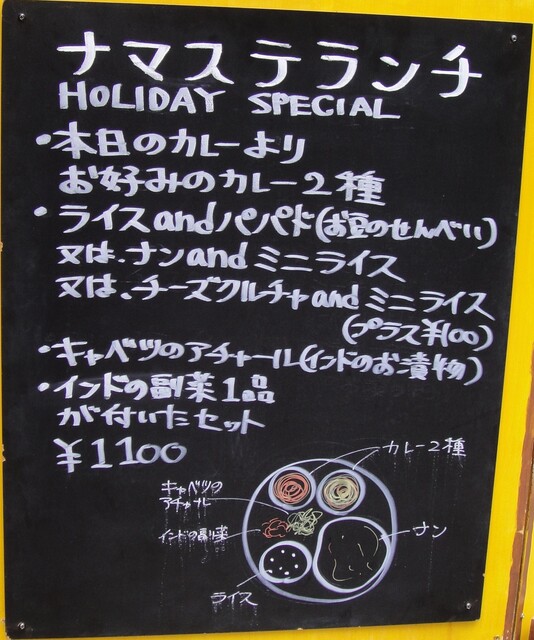 ナマステランチ
HOLIDAY SPECIAL
・本日のカレーより
お好みのカレー2種
・ライスandパパド(お豆のせんべい)
又は、ナンandミニライス
又は、チーズクルチャandミニライス
(プラス¥100)
・キャベツのアチャール(インドのお漬物)
・インドの副菜1品
が付いたセット
¥1100
カレー2種
キャベツの
アチャール
インドの副菜
ナン
ライス